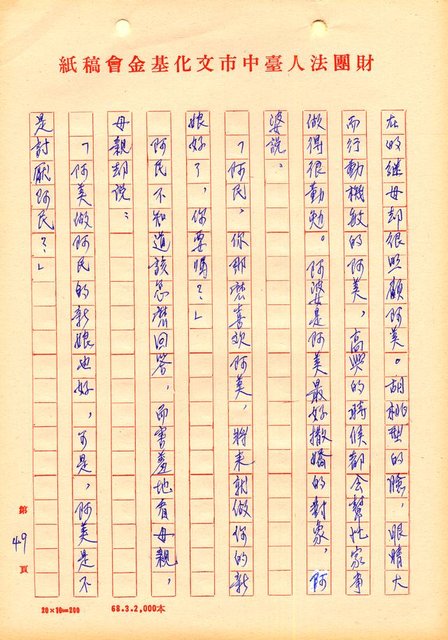 財團法人臺中市文化基金會稿紙
在的繼母却很照顧阿美。胡桃型的臉，眼睛大
而行動機敏的阿美，高興的時候都会幫忙家事
做得很勤勉。阿婆是阿美最好撒嬌的對象，阿
婆說：
「阿民，你那麽喜欢阿美，將來就做你的新
娘好了，你要嗎？」
阿民不知道該怎麽回答，而害羞地看母親，
母親却說：
「阿美做阿民的新娘也好，可是，阿美是不
是討厭阿民？」
第49頁
20×10=200
68.3.2,000本